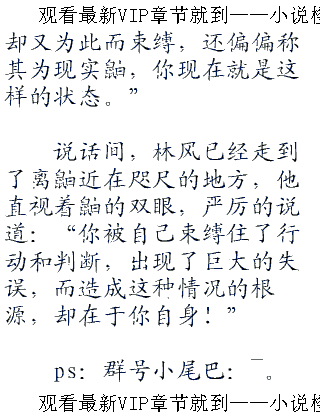 观看最新VIP章节就到——小说检
却又为此而束缚，还偏偏称
其为现实鼬，你现在就是这
样的状态。”
说话间，林风已经走到
了离鼬近在咫尺的地方，他
直视着鼬的双眼，严厉的说
道：“你被自己束缚住了行
动和判断，出现了巨大的失
误，而造成这种情况的根
源，却在于你自身！”
ps：群号小尾巴：¯。
观看最新VIP章节就到——小说检